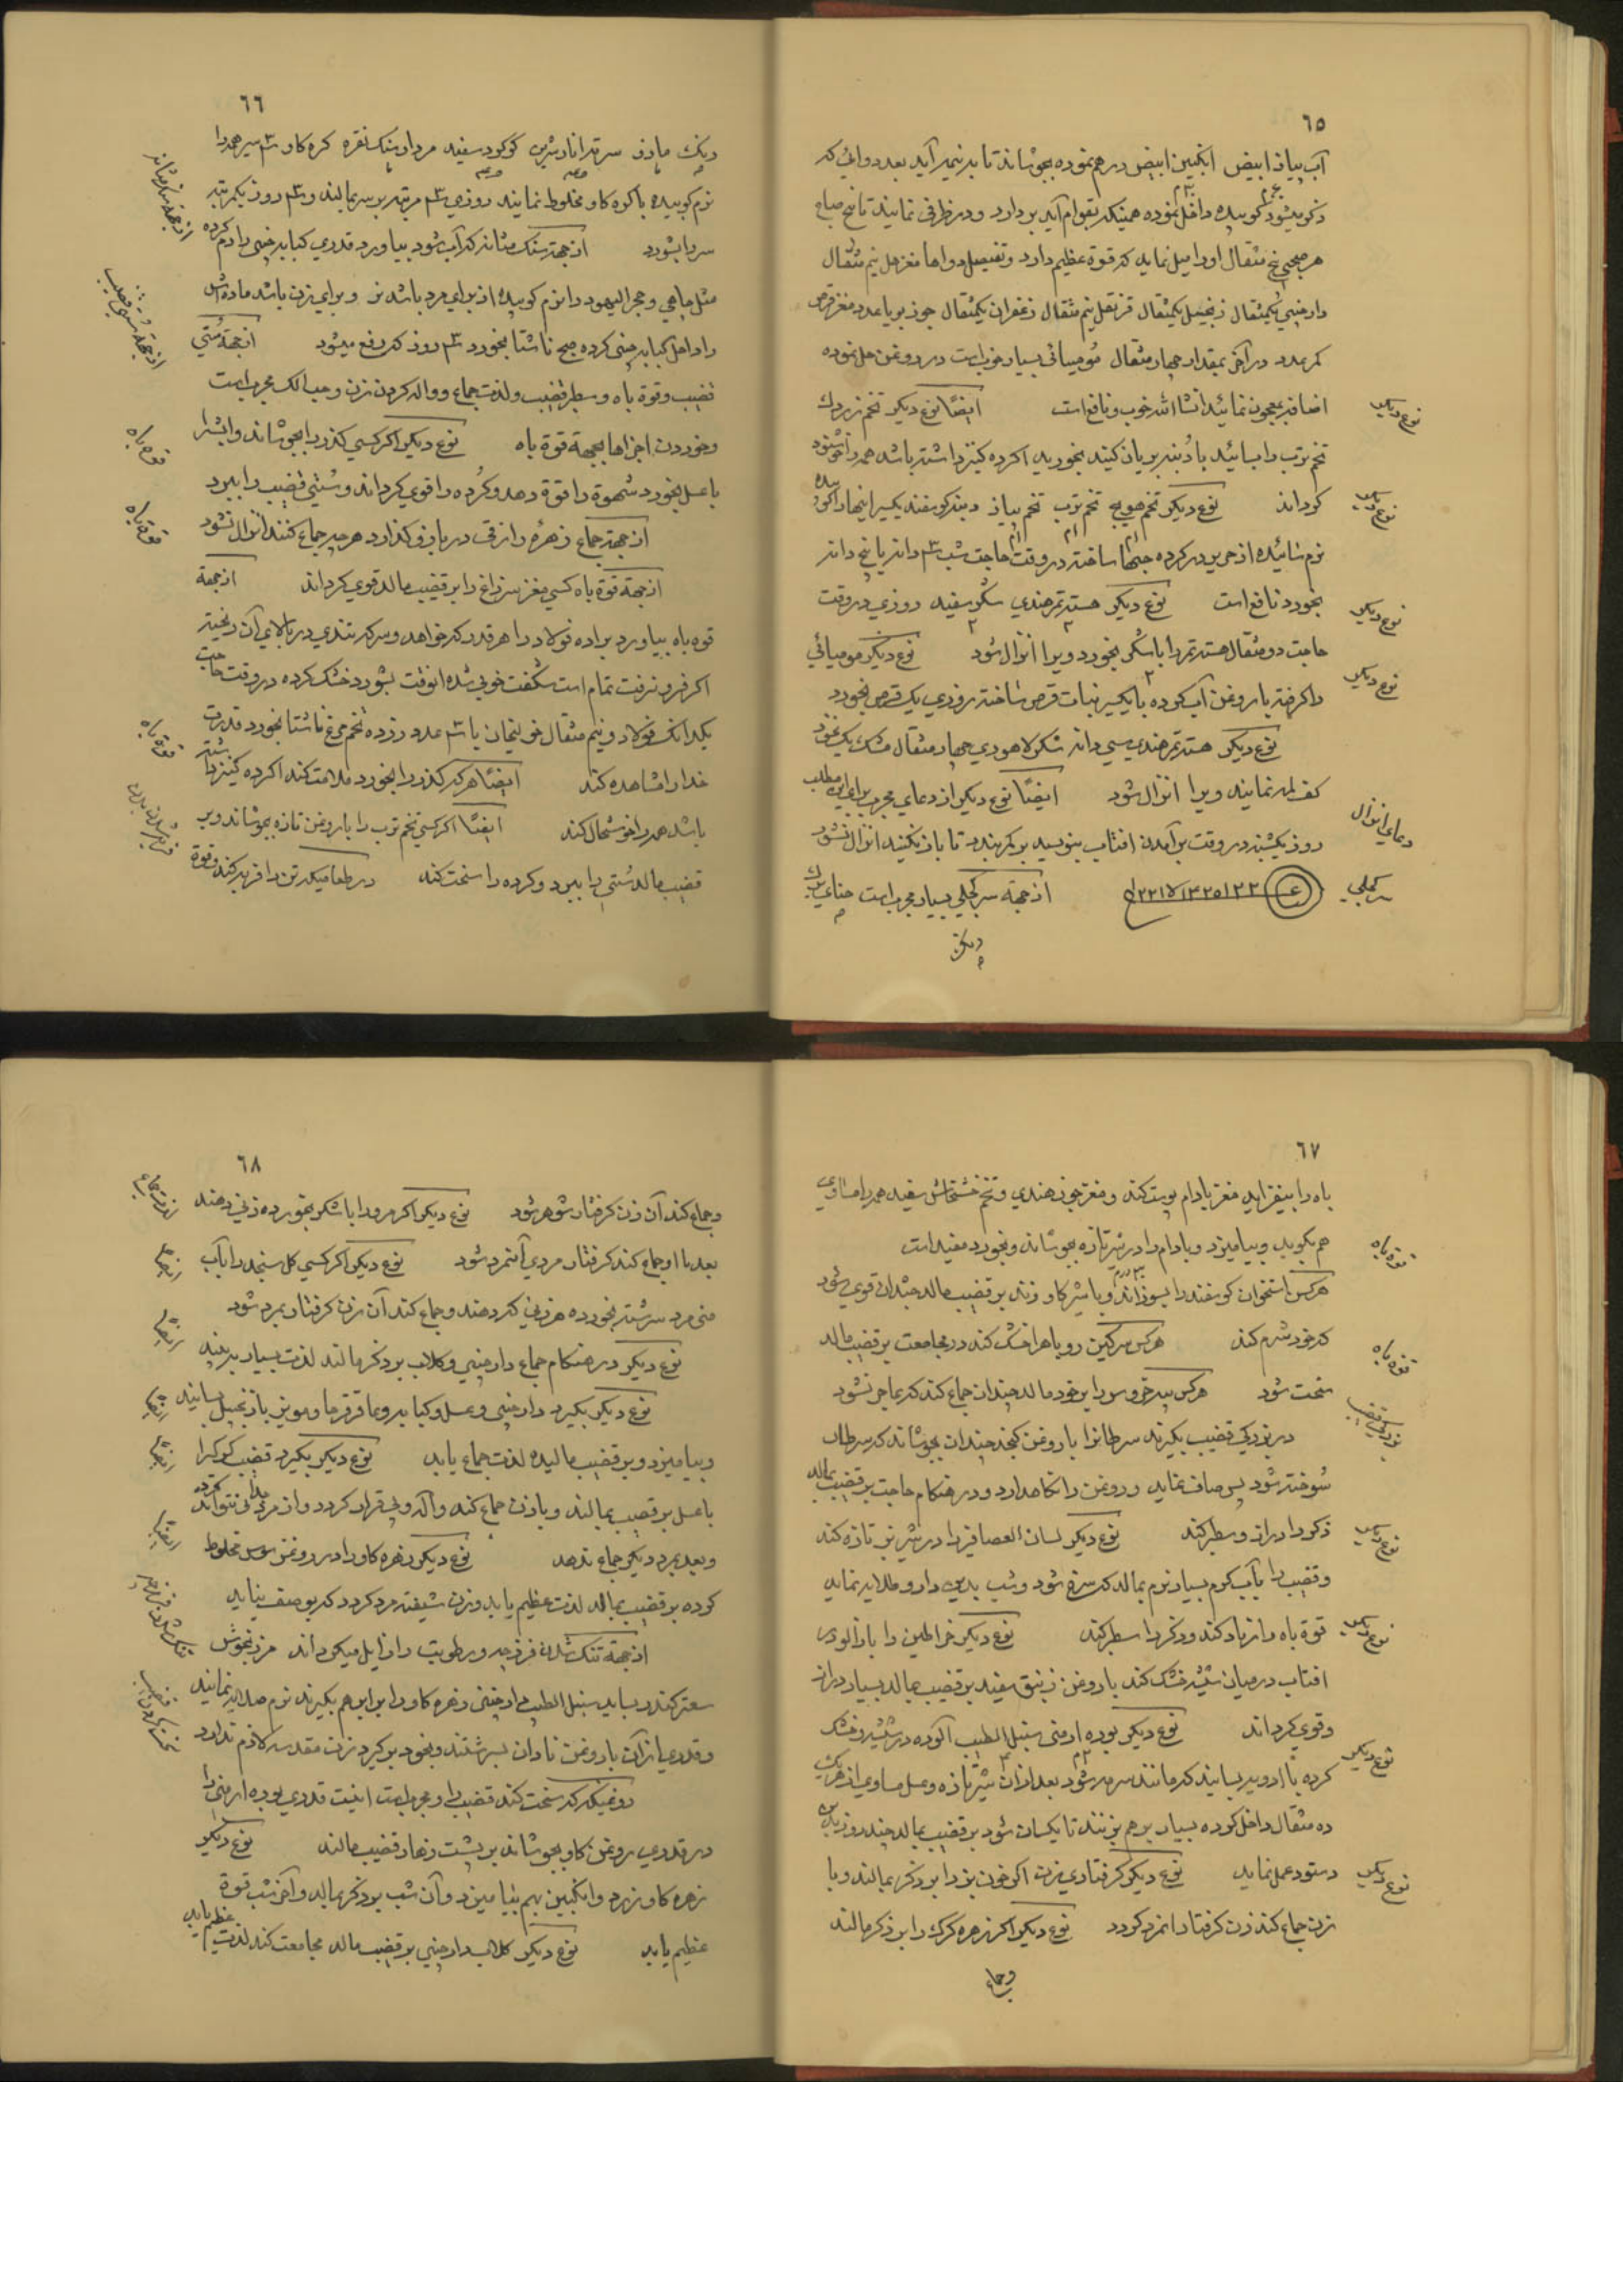 ٦٥
آب پیاز ابیض انکبین ابیض درهم نموده بجوشاند تا بدنیمه آید بعد دوائی که
ذکر میشود کوبیده داخل نموده همینکه بقوام آید بردارد و در ظرفی نمایند تا پنج صباح
هر صبحی پنج مثقال اورا میل نماید که قوة عظیم دارد وتفصیل دواها مغز هل نیم مثقال
دارچینی یکمثقال زنجبیل یکمثقال قرنفل نیم مثقال زعفران یکمثقال جوز بویا عدد مغز
کم عدد در آخر بمقدار چهار مثقال مومیائی بسیار خوبست در روغن حل نموده
اضافه بمعجون نمائید انشا الله خوب ونافع است ایضًا نوع دیکر تخم زردک
نوع دیکر
تخم ترب را سائید با دنبه بریان کنید بخورید اکر ده کنیز داشته باشد همه را خوشنود
کرداند نوع دیکر تخم هویج تخم ترب تخم پیاز دنبه کوسفند یکسیر اینهارا کوبیده
نوع دیکر
نرم سائیده از حریر در کرده حبها ساخته در وقت حاجت شب ٣ دانه یا پنج دانه
بخورد نافع است نوع دیکر هسته تمر هندی سکر سفید روزی در وقت
نوع دیکر
حاجت دو مثقال هسته تمر را با سکر بخورد ویرا انزال شود نوع دیکر مومیائی
نوع دیکر
را کرفته با روغن آب کرده با یکسیر نبات قرص ساخته روزی یک قرص بخورد
نوع دیکر هسته تمر هندی سی دانه شکر لاهوری چهار مثقال مشک یک نخود
کف نمایند ویرا انزال شود ایضًا نوع دیکر از دعای مجرب برای این مطلب
دعای انزال
روز یکشنبه در وقت برآمدن افتاب بنویسد بر کمر بندد تا باز نکنید انزال نشود
از جهة سر کچلی بسیار مجربست حنای
سر کچلی
دیک
٦٦
دیک مازو سرقه انار شرین کوکرد سفید مرداد سنک نقره کره کاو ٣ سیر همه را
نرم کوبیده با کره کاو مخلوط نمایند روزی ٣ مرتبه بر سر بمالند و ٣ روز یکمرتبه
سر را بشورد از جهة سنک مثانه که آب شود بیاورد قدری کبابه چینی را دم کرده
از جهة سنک مثانه
مثل چاهی و حجر الیهود را نرم کوبیده از برای مرد باشد نر و برای زن باشد ماده اش
را داخل کبابه چینی کرده صبح ناشتا بخورد ٣ روز که رفع میشود از جهة سستی
از جهة سستی قضیب
قضیب وقوة باه وسطبر قضیب ولذت جماع وواله کردن زن وحب الک مجربست
وخوردن اجزاها بجهة قوة باه نوع دیکر اکر کسی کذر را بجوشاند وانشرا
قوة باه
با عسل بخورد شهوة را قوة دهد وکرده را قوی کرداند وسستی قضیب را ببرد
از جهة جماع زهرۀ را زقی در بازو کذارد هر چه جماع کنند انزال نشود
قوة باه
از جهة قوة باه کسی مغز سر زاغ را بر قضیب مالد قوی کرداند از جهة
قوه باه بیاورد براده فولاد را هر قدر که خواهد وسرکه تندی در بالای آن ریخته
اکر فرو نرفت تمام است شکفت خوبی شده انوقت بشورد خشک کرده در وقت حاجت
یکدانک فولاد و نیم مثقال خولنجان با ٣ عدد زرده تخم مرغ ناشتا بخورد قدرت
قوة باه
خدارا مشاهده کند ایضًا هر که کذر را بخورد مداومت کند اکر ده کنیز داشته
باشد همه را خوشحال کند ایضًا اکر کسی تخم ترب را با روغن تازه بجوشاند و بر
قضیب مالد سستی را ببرد وکرده را سخت کند در طعامیکه تن را فربه کند وقوة
٦٧
باه را بیفزاید مغز بادام پوست کند ومغز جوز هندی وتخم خشخاش سفید همه را مساوی
هم بکوبد وبیامیزد وبادام را در شیر تازه بجوشاند وبخورد مفید است
قوة باه
هر کس استخوان کوسفند را بسوزاند وبا شیر کاو زند بر قضیب مالد چندان قوی شود
که خود شرم کند هر کس سرکین روباه را خشک کند در مجامعت بر قضیب مالد
قوة باه
سخت شود هر کس پیه خروس را بر خود مالد چندان جماع کند که عاجز نشود
در بزرکی قضیب بکیرند سرطانرا با روغن کنجد چندان بجوشاند که سرطان
بزرکی قضیب
سوخته شود پس صاف نماید وروغن را نکاهدارد ودر هنکام حاجت بر قضیب مالد
ذکر را دراز وسطبر کند نوع دیکر لسان العصافیر را در شیر بز تازه کند
نوع دیکر
وقضیب را بآب کرم بسیار نرم بمالد که سرخ شود وشب بدین دارو طلایه نماید
قوة باه را زیاد کند وذکر را سطبر کند نوع دیکر خراطین را با زالو در
نوع دیکر
افتاب در میان شیشه خشک کند با روغن زنبق سفید بر قضیب مالد بسیار دراز
وقوی کرداند نوع دیکر بوره ارمنی سنبل الطیب آلوده در شیشه خشک
نوع دیکر
کرده با ادویه بسایند که مانند سرمه شود بعد از آن شیر تازه وعسل مساوی از هر یک
ده مثقال داخل کرده بسیار برهم بزنند تا یکسان شود بر قضیب بمالد چند روز باین
دستور عمل نماید نوع دیکر کرفتاری زن اکر خون بز را بر ذکر بمالند و با
نوع دیکر
زن جماع کند زن کرفتار انمرد کردد نوع دیکر اکر زهره کرک را بر ذکر مالند
وجماع
٦٨
وجماع کند آن زن کرفتار شوهر شود نوع دیکر اکر مرو را با شکر بخورد زنی دهند
لذت جماع
بعد با او جماع کند کرفتار مردی آنمرد شود نوع دیکر اکر کسی کل سنجد را بآب
ایضًا
منی مرد سرشته بخورد هر زنی که دهند وجماع کند آن زن کرفتار مرد شود
ایضًا
نوع دیکر در هنکام جماع دارچینی وکلاب بر ذکر مالند لذت بسیار بدهند
نوع دیکر بکیرد دارچینی وعسل وکبابه وعاقرقرحا ومویز با زنجبیل بسایند
ایضًا
وبیامیزد وبر قضیب مالیده لذت جماع یابد نوع دیکر بکیرد قضیب کرکرا
ایضًا
با عسل بر قضیب بمالند وبا زن جماع کند واله وبی قرار کردد واز مرد جدائی نتواند کرد
وبعد بمرد دیکر جماع ندهد نوع دیکر زهره کاو را در روغن سوسن مخلوط
ایضًا
کرده بر قضیب بمالد لذت عظیم یابد وزن شیفته مرد کردد که بوصف نیاید
از جهة تنک شدن فرج چه ورطوبت را زایل میکرداند مرزنجوش
سعتر کندر بساید سنبل الطیب دارچینی زهره کاو را برابر هم بکیرند نرم صلایه نمایند
وقدری از آن با روغن نادان بسرشتند وبخود برکیرد زن مقدسه کلازم ندارد
روغنیکه که سخت کند قضیب را ومجربست اینست قدری بوره ارمنی را
در قدری روغن کاو بجوشاند بر پشت زهار قضیب مالند نوع دیکر
زهره کاو نر زرد وانکبین بهم بیامیزد وآن شب بر ذکر بمالد وآخر شب قوة
عظیم یابد نوع دیکر کلاب دارچینی بر قضیب مالد مجامعت کند لذت عظیم یابد